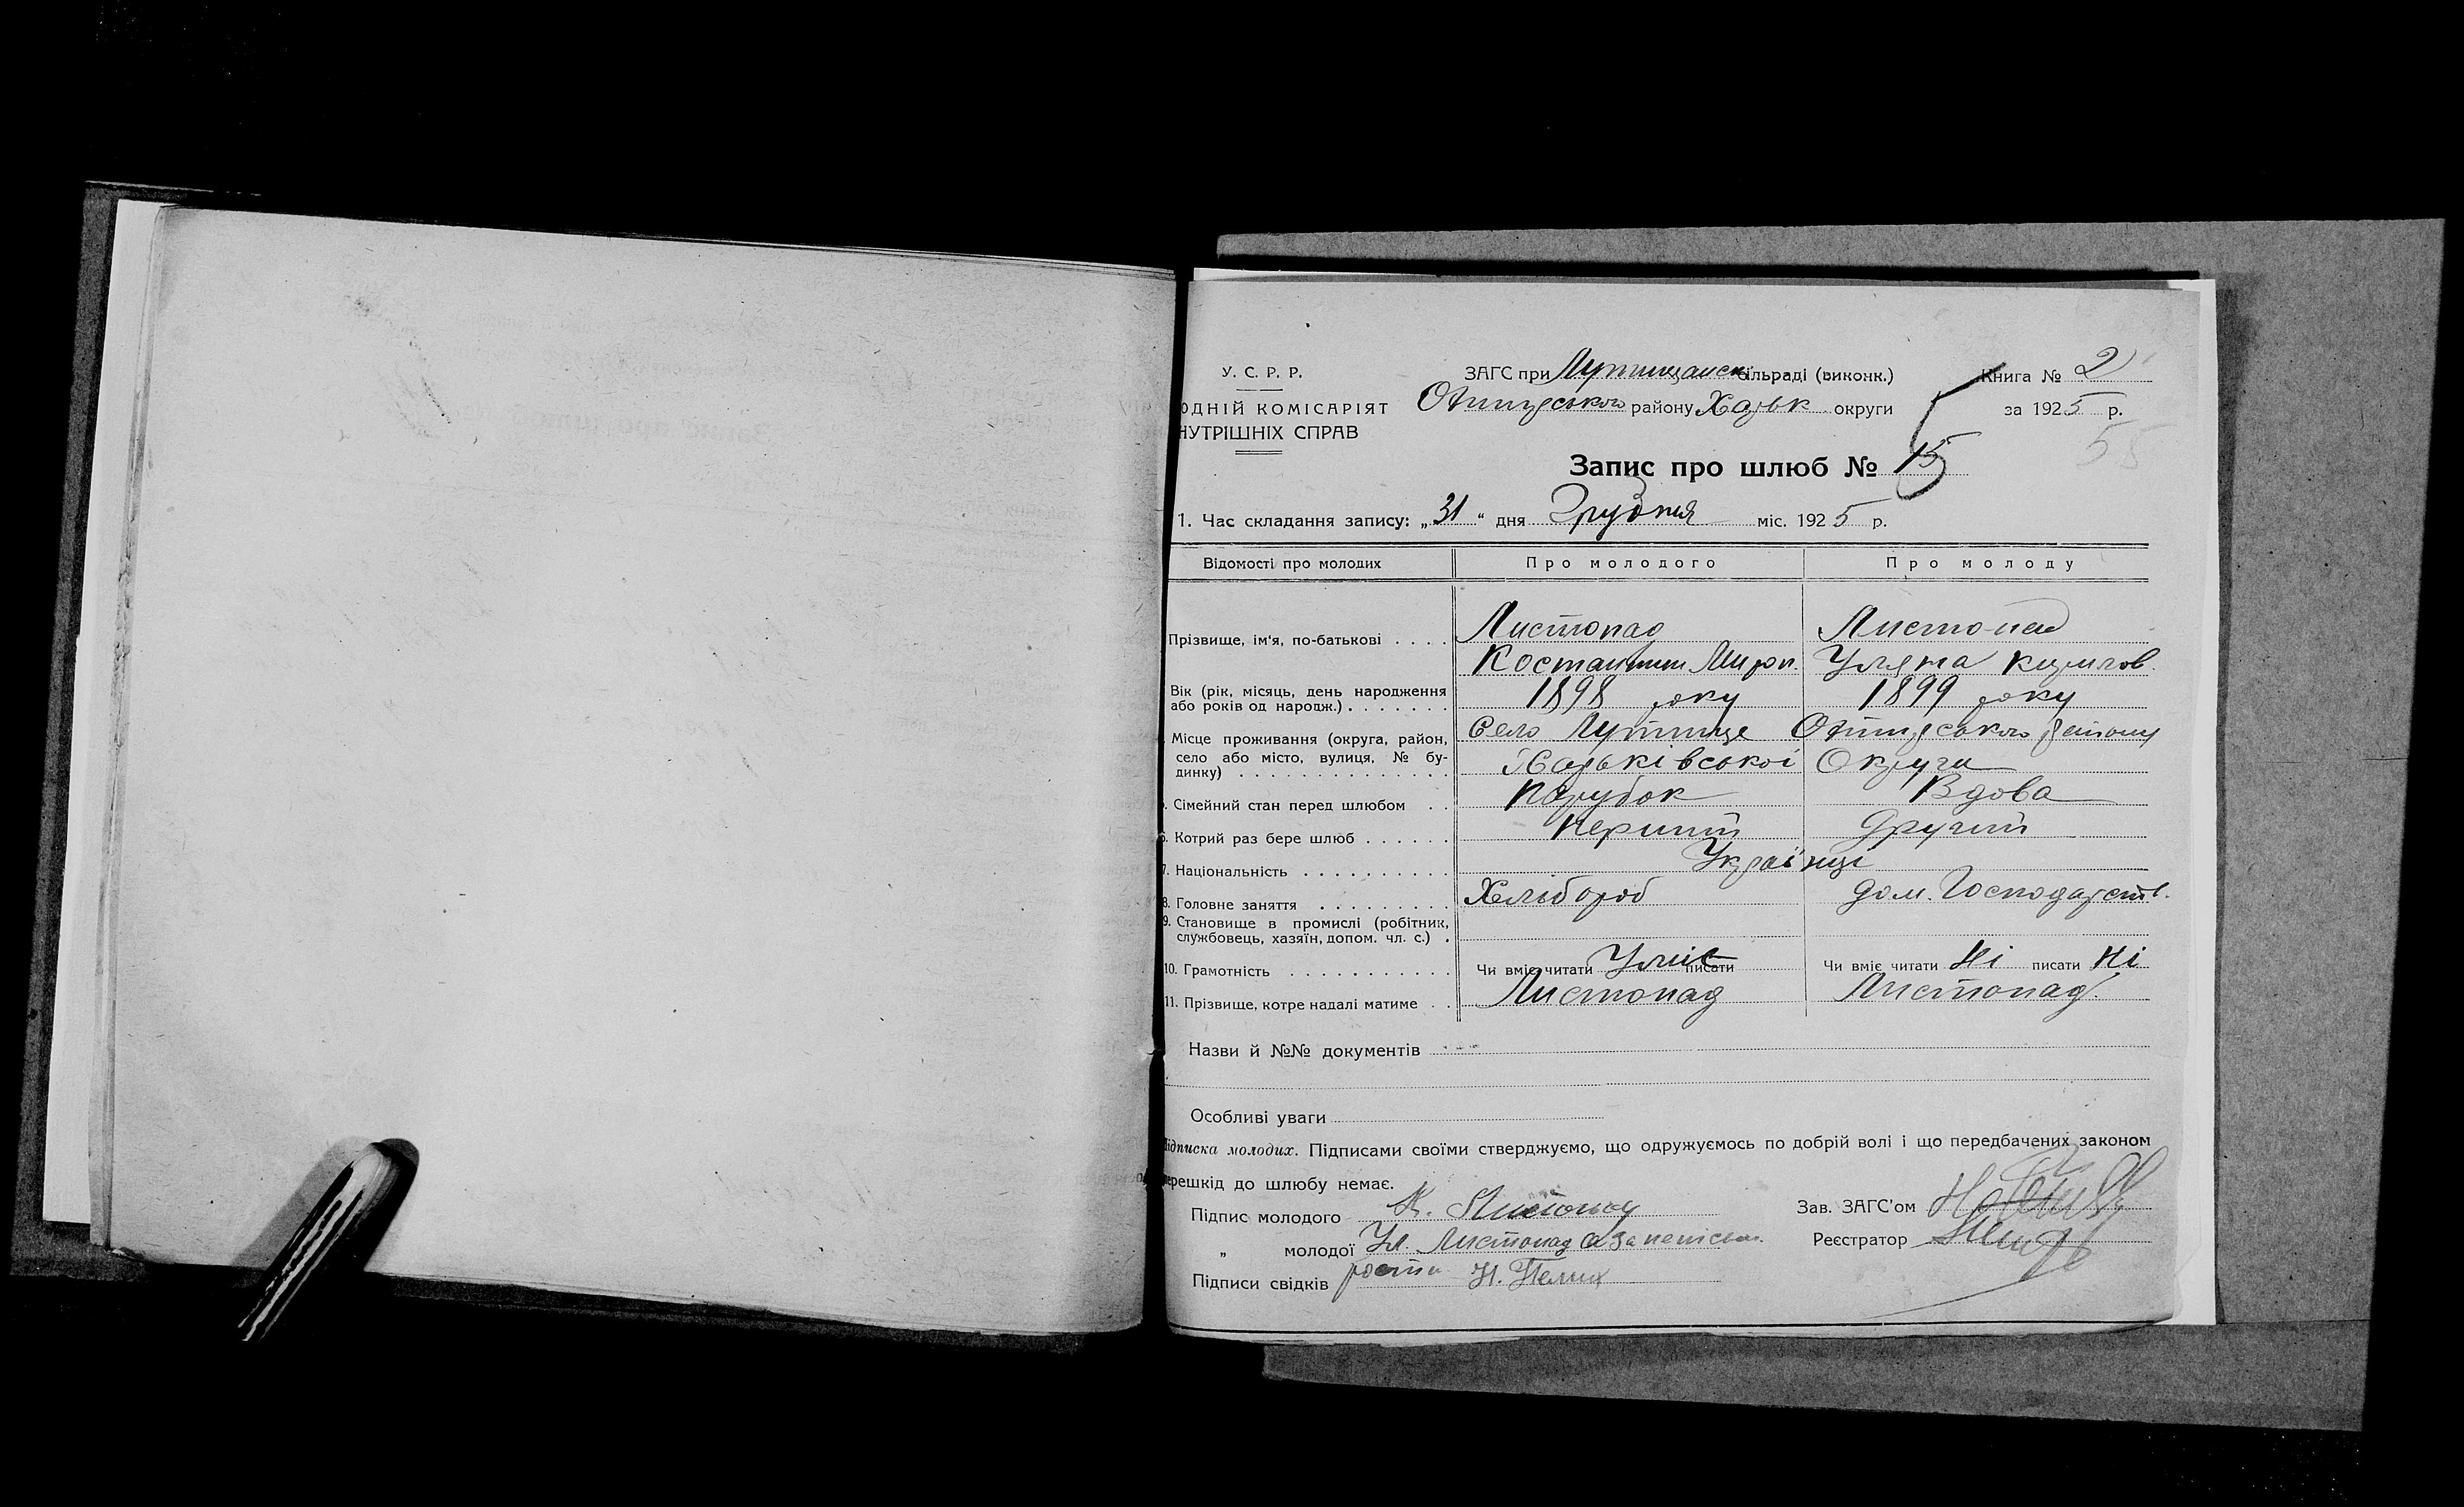 У. С. Р. Р.
ОДНІЙ КОМІСАРІЯТ
НУТРІШНІХ СПРАВ
ЗАГС при Лутищанск сільраді (виконк.)
Опішдського району Харьк округи
Книга № 2
за 1925 р.
55
Запис про шлюб № 15
1. Час складання запису: „31“ дня Грудня міс. 1925 р.
Відомості про молодих Про молодого Про молоду
Прізвище, ім'я, по-батькові . . . . Листопад Листопад
Костантин Мирон. Уляна Кирилов.
Вік (рік, місяць, день народження
або років од народж.) . . . . . . . 1898 року 1899 року
Місце проживання (округа, район, село або місто, вулиця, № будинку) . . . Село Лутище району
Харьківської Округи
Сімейний стан перед шлюбом . . Парубок Вдова
6. Котрий раз бере шлюб . . . . . . Перший Другий
7. Національність . . . . . . . . . . Українці
8. Головне заняття . . . . . . . . . Хлібороб дом. Господарств.
9. Становище в промислі (робітник,
службовець, хазяїн, допом. чл. с.) .
10. Грамотність . . . . . . . . . . . Чи вміє читати Уміє писати Чи вміє читати Ні писати Ні
11. Прізвище, котре надалі матиме . . Листопад Листопад
Назви й №№ документів
Особливі уваги
Підписка молодих. Підписами своїми стверджуємо, що одружуємось по добрій волі і що передбачених законом
перешкід до шлюбу немає.
Підпис молодого К. Листопад Зав. ЗАГС'ом
„ молодої Ул. Листопад а за неписем. Реєстратор
Підписи свідків рости Н. Пелих